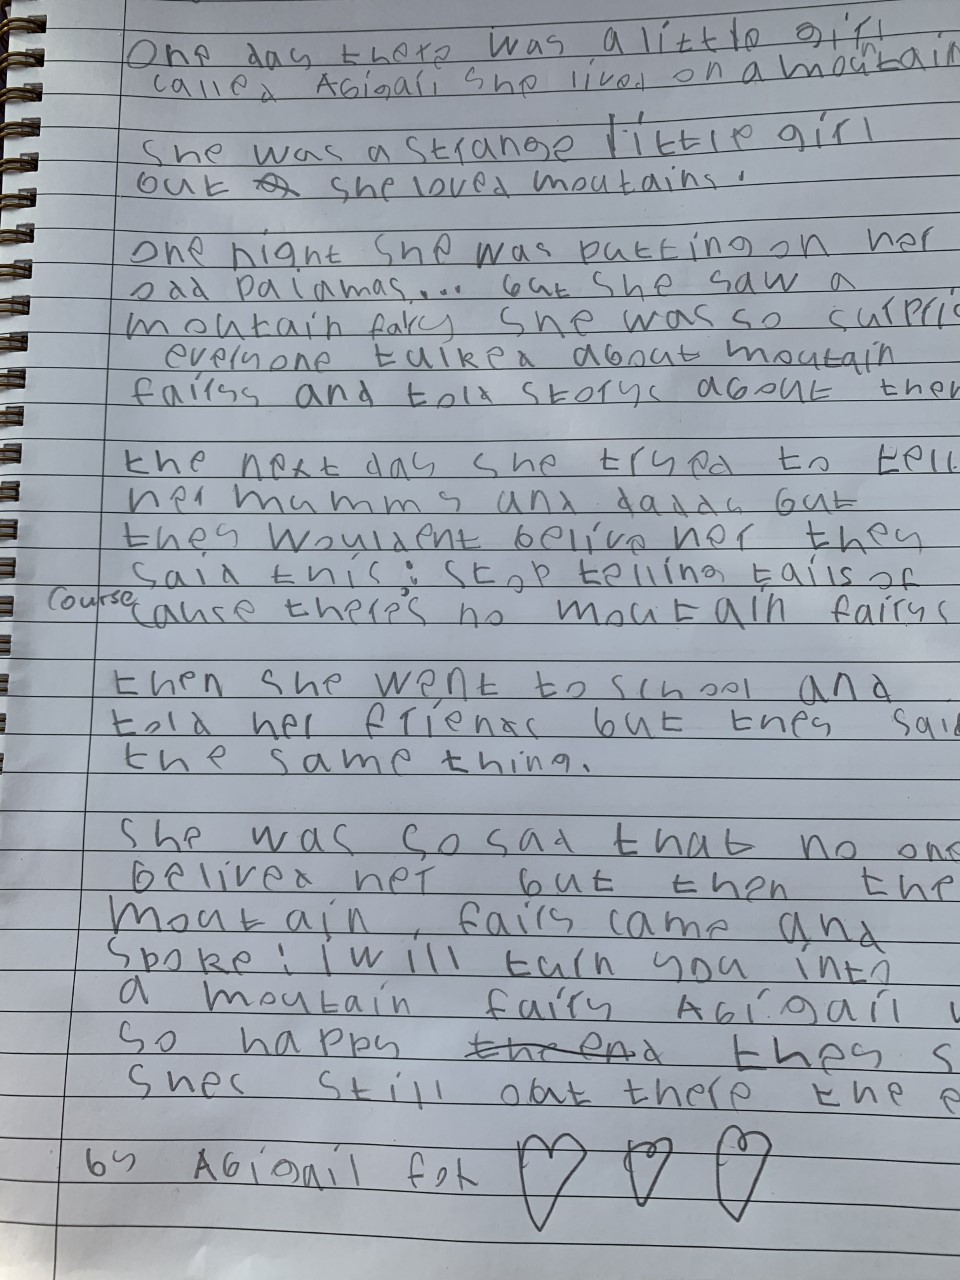 One day there was a little girl
called Abigail she lived on a moutain
she was a strange little girl
but she loved moutains.
one night she was putting on her
odd pajamas... but she saw a
moutain fairy she was so surpri
everyone talked about moutain
fairys and told storys about them
the next day she tryed to tell
her mummy and daddy but
they wouldent belive her they
said this: stop telling tails of
course
cause there's no moutain fairys
then she went to school and
told her friends but they said
the same thing.
she was so sad that no one
belived her but then the
moutain fairy came and
spoke: i will turn you into
a moutain fairy Abigail w
so happy the end they s
shes still out there the e
by Abigail for